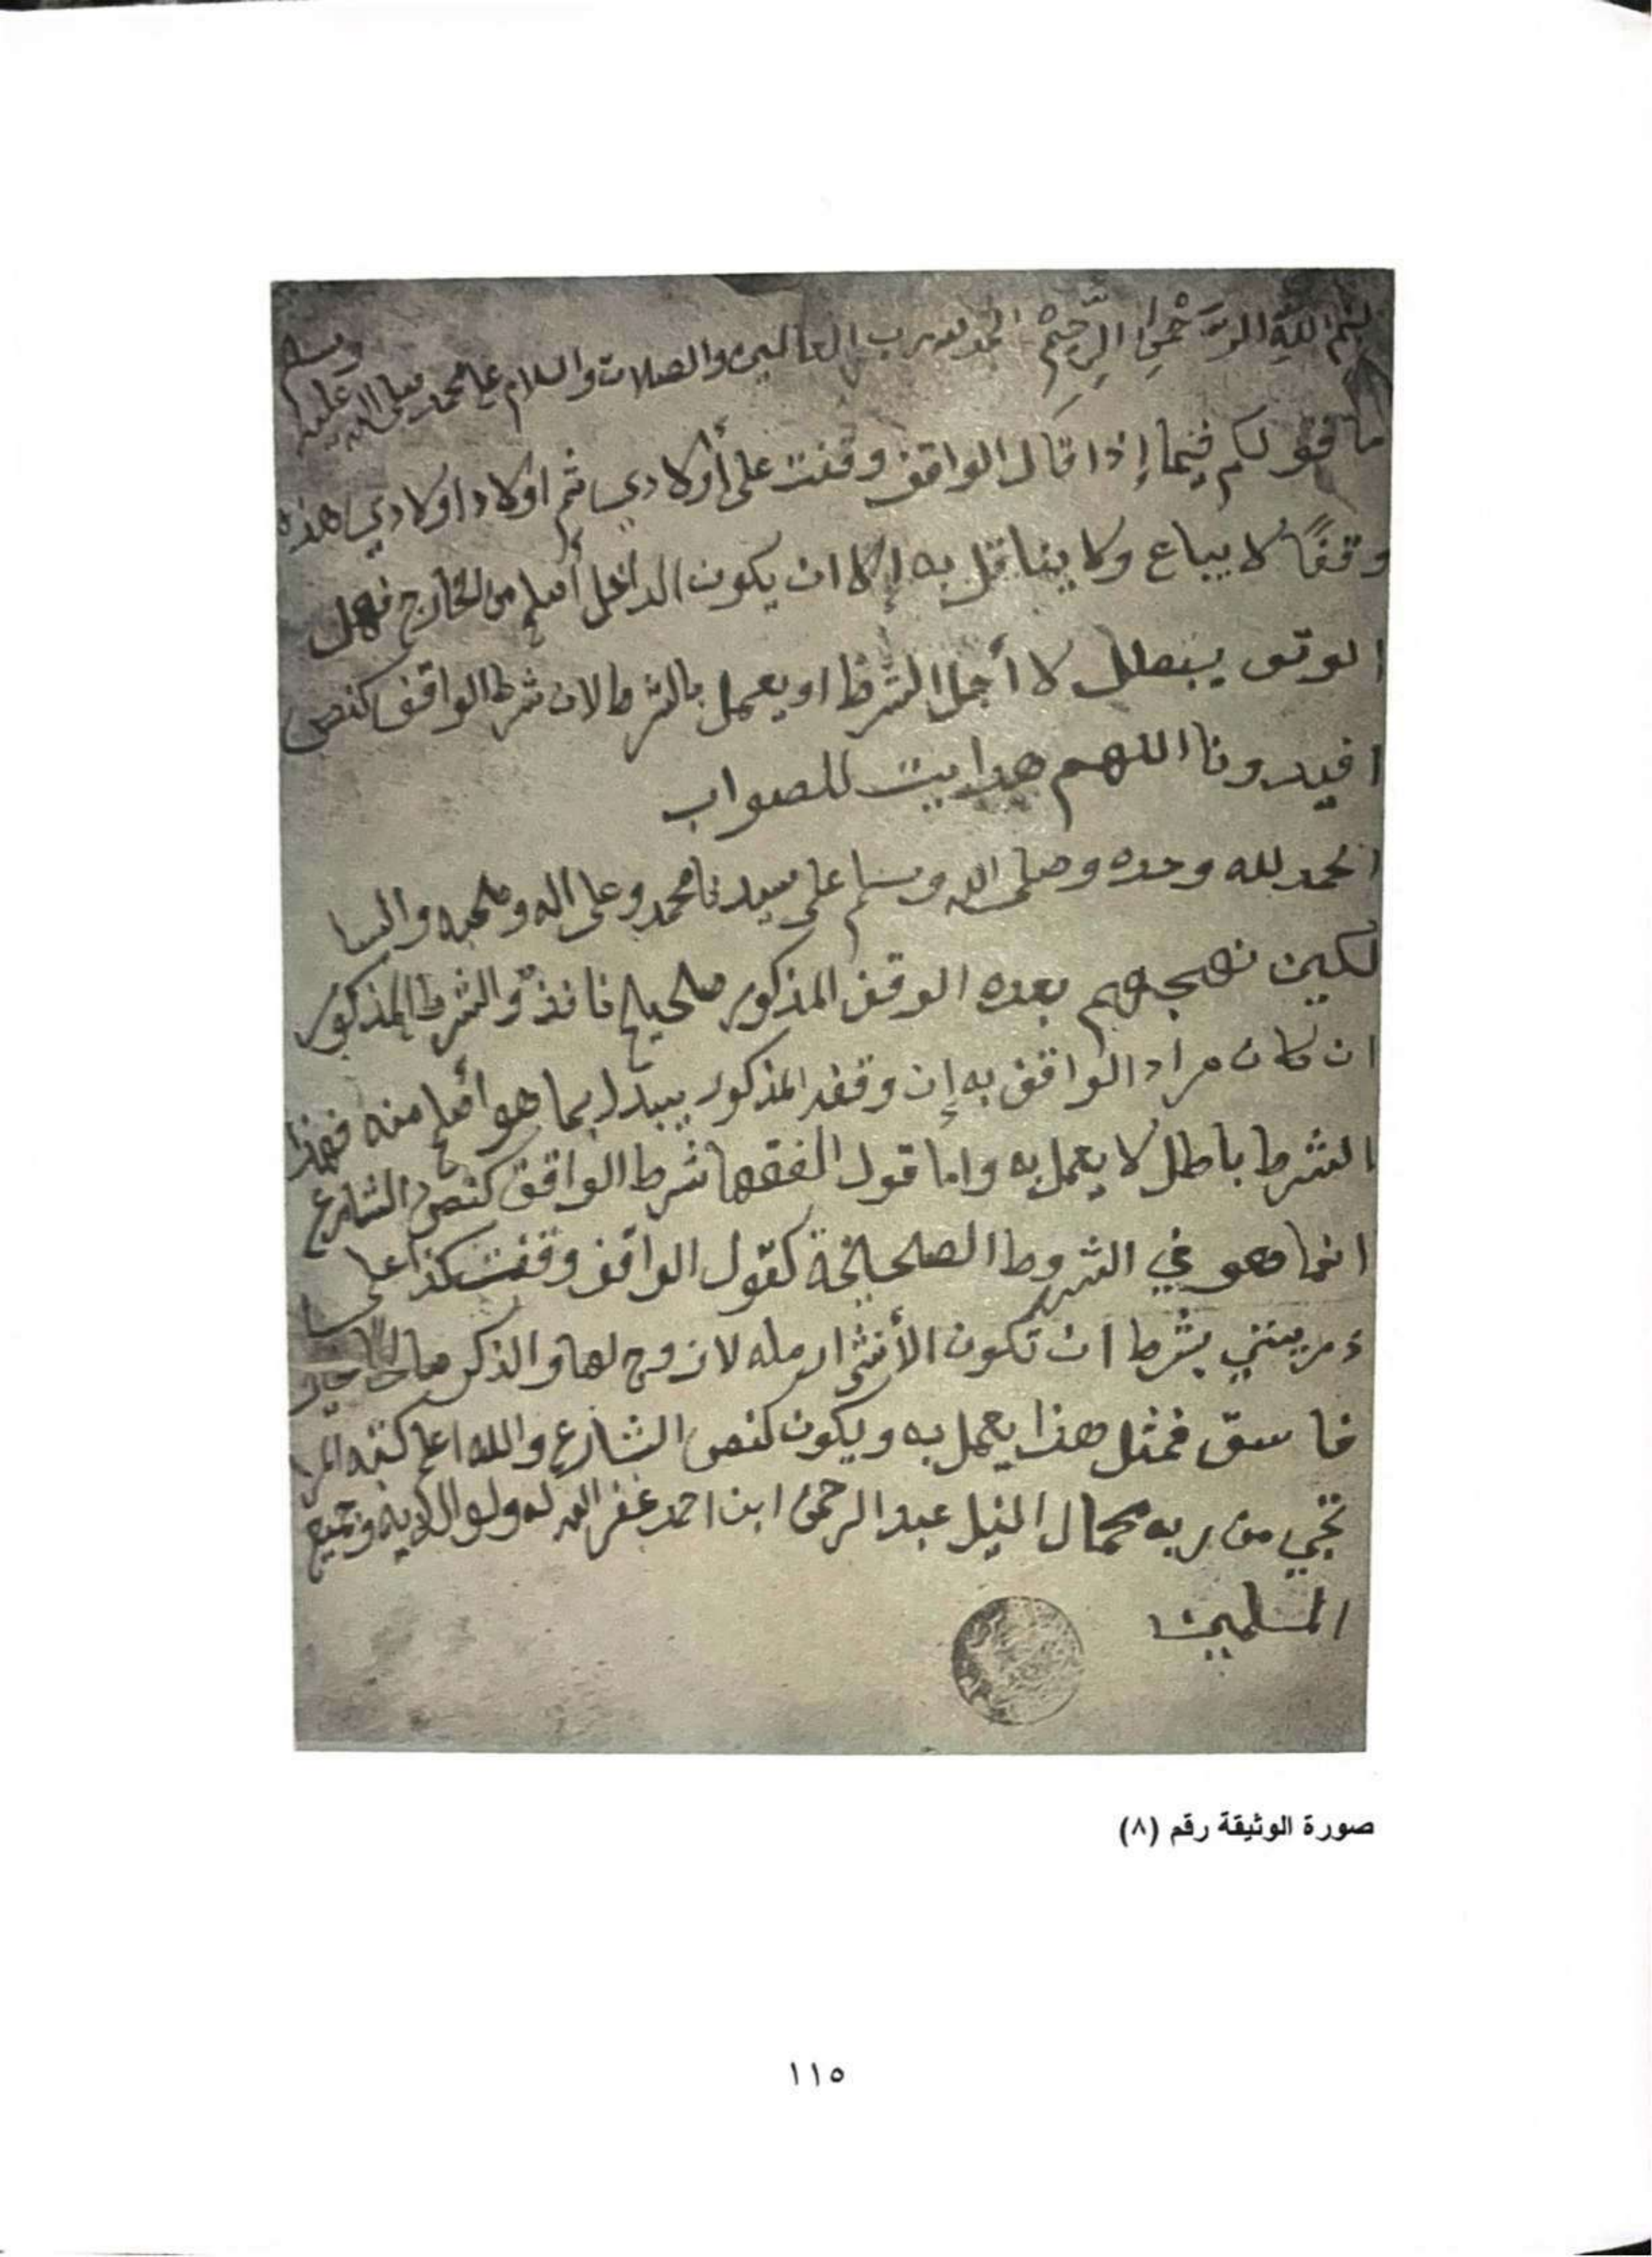 بسم الله الرحمن الرحيم الحمد لله رب العالمين والصلات والسلام على محمد صلى الله عليه وسلم
ما قولكم فيما إذا قال الواقف وقفت على أولادي ثم اولاد اولادي هذه
وقفًا لا يباع ولا يناقل به إلا ان يكون الداخل أصلح من الخارج فهل
الوقف يبطل لا أجل الشرط او يعمل بالشرط لان شرط الواقف كنص
افيدونا اللهم هدايت للصواب
الحمد لله وحده وصلى الله وسلم على سيدنا محمد وعلى اله وصحبه والسا
لكين نهجهم بعده الوقف المذكور صحيح نافذ والشرط المذكور
ان كان مراد الواقف به إن وقفه المذكور يبدل بما هو أصلح منه فهذا
الشرط باطل لا يعمل به واما قول الفقها شرط الواقف كنص الشارع
انما هو في الشروط الصحيحة كقول الواقف وقفت كذا على
بشرط ان تكون الأنثى ارمله لا زوج لها والذكر صالحا
فاسق فمثل هذا يعمل به ويكون كنص الشارع والله اعلم كتبه المر
تجي من ربه كمال النيل عبد الرحمن ابن احمد غفر الله له ولوالديه وجميع
المسلمين
صورة الوثيقة رقم (٨)
١١٥